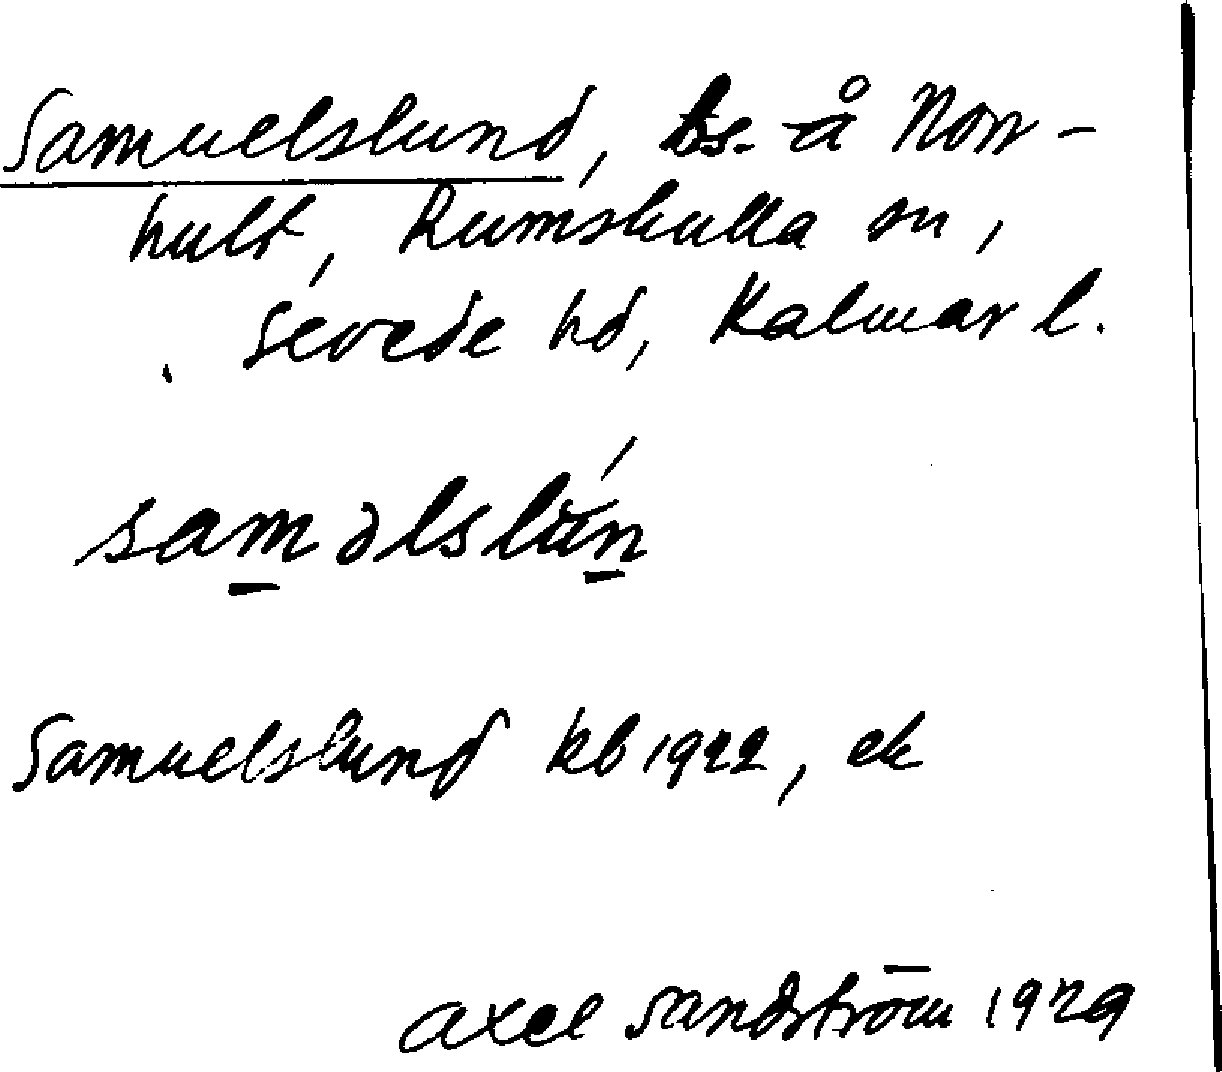 Samuelslund, bs. å Norr-
hult, Rumskulla sn,
Sevede hd, Kalmar l.
saməlslún
Samuelslund kb 1922, ek
Axel Sandström 1929